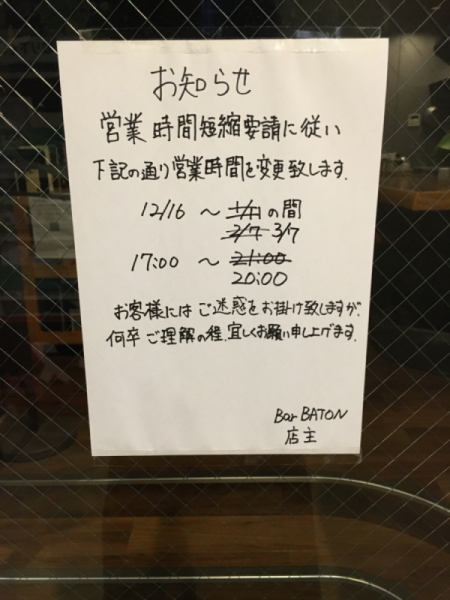 お知らせ
営業時間短縮要請に従い
下記の通り営業時間を変更致します.
12/16 ～ 1/11 の間
2/7 3/7
17:00 ～ 21:00
20:00
お客様にはご迷惑をお掛け致しますが、
何卒ご理解の程、宜しくお願い申し上げます.
Bar BATON
店主